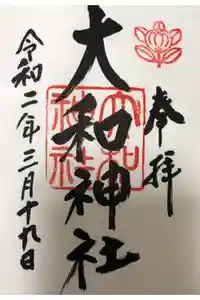 奉拝
大和神社
大和神社
令和二年三月十九日